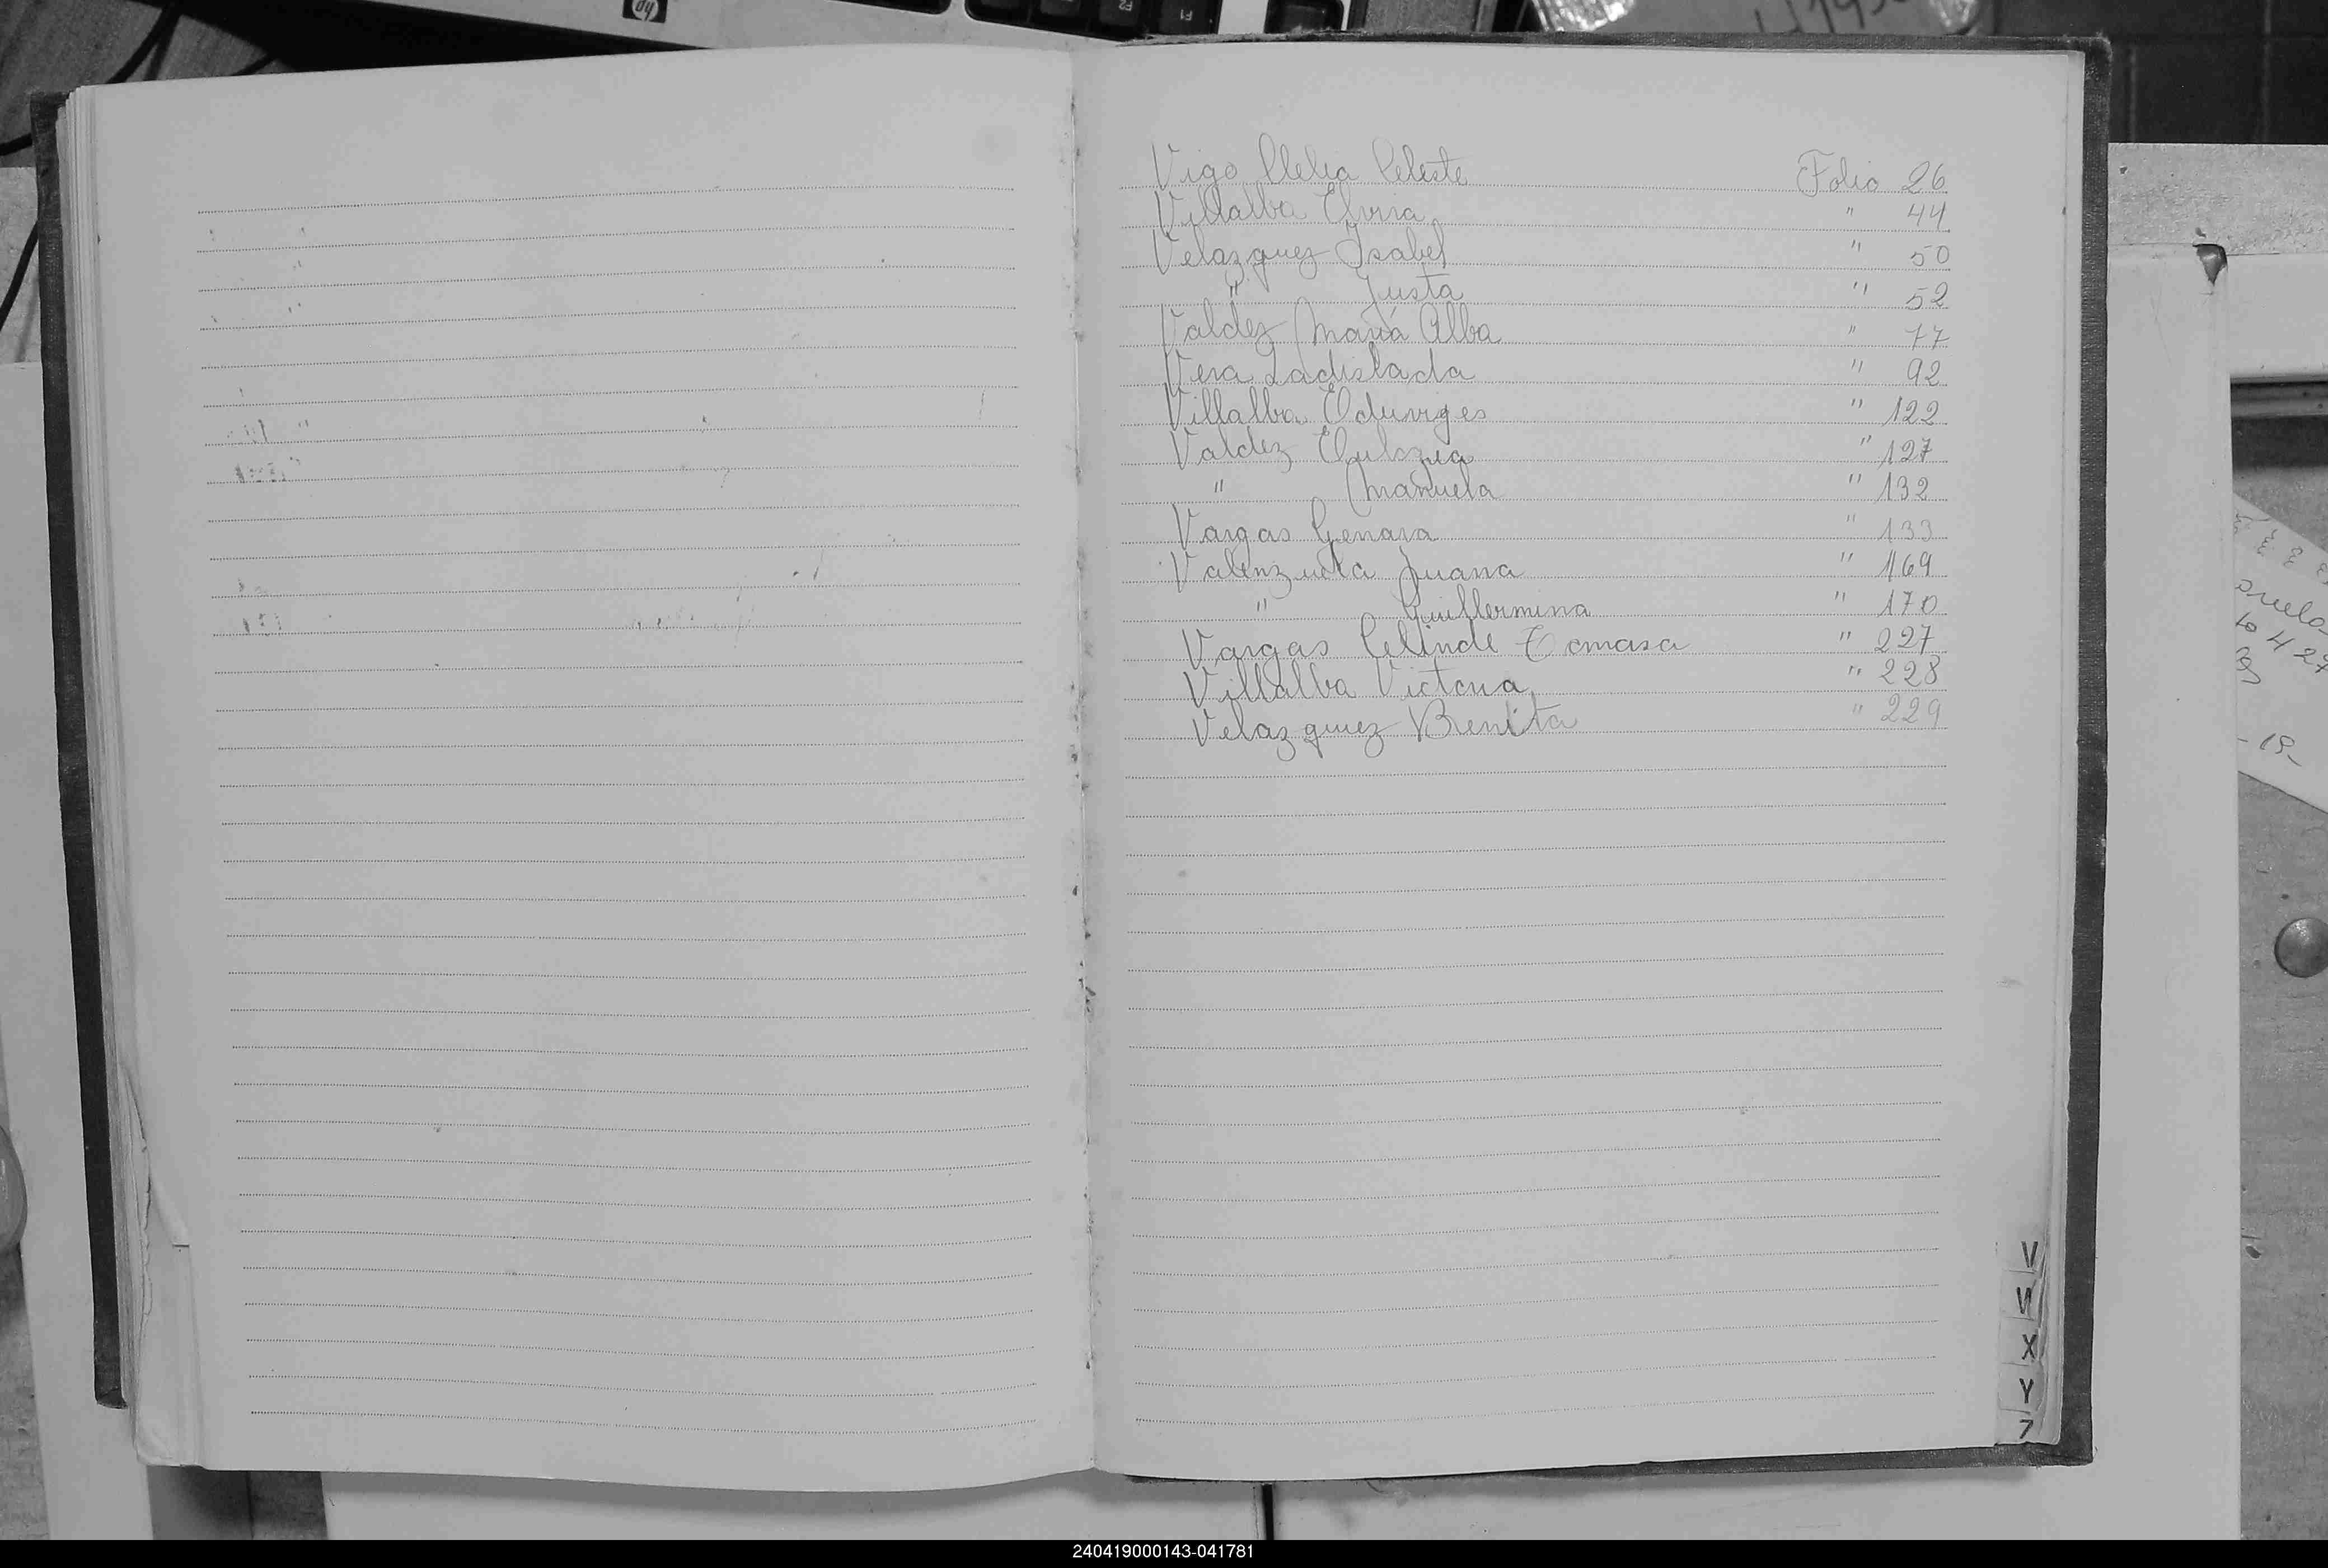 Vigo Clelia Celeste Folio 26
Villalba Elvira " 44
Velazquez Isabel " 50
" Justa " 52
Valdez María Alba " 77
Vera Ladislada " 92
Villalba Eduviges " 122
Valdez " 127
" Manuela " 132
Vargas Genara " 133
Valenzuela Juana " 169
" Guillermina " 170
Vargas Celinde Tomasa " 227
Villalba Victoria " 228
Velazquez Benita " 229
V
W
X
Y
Z
240419000143-041781